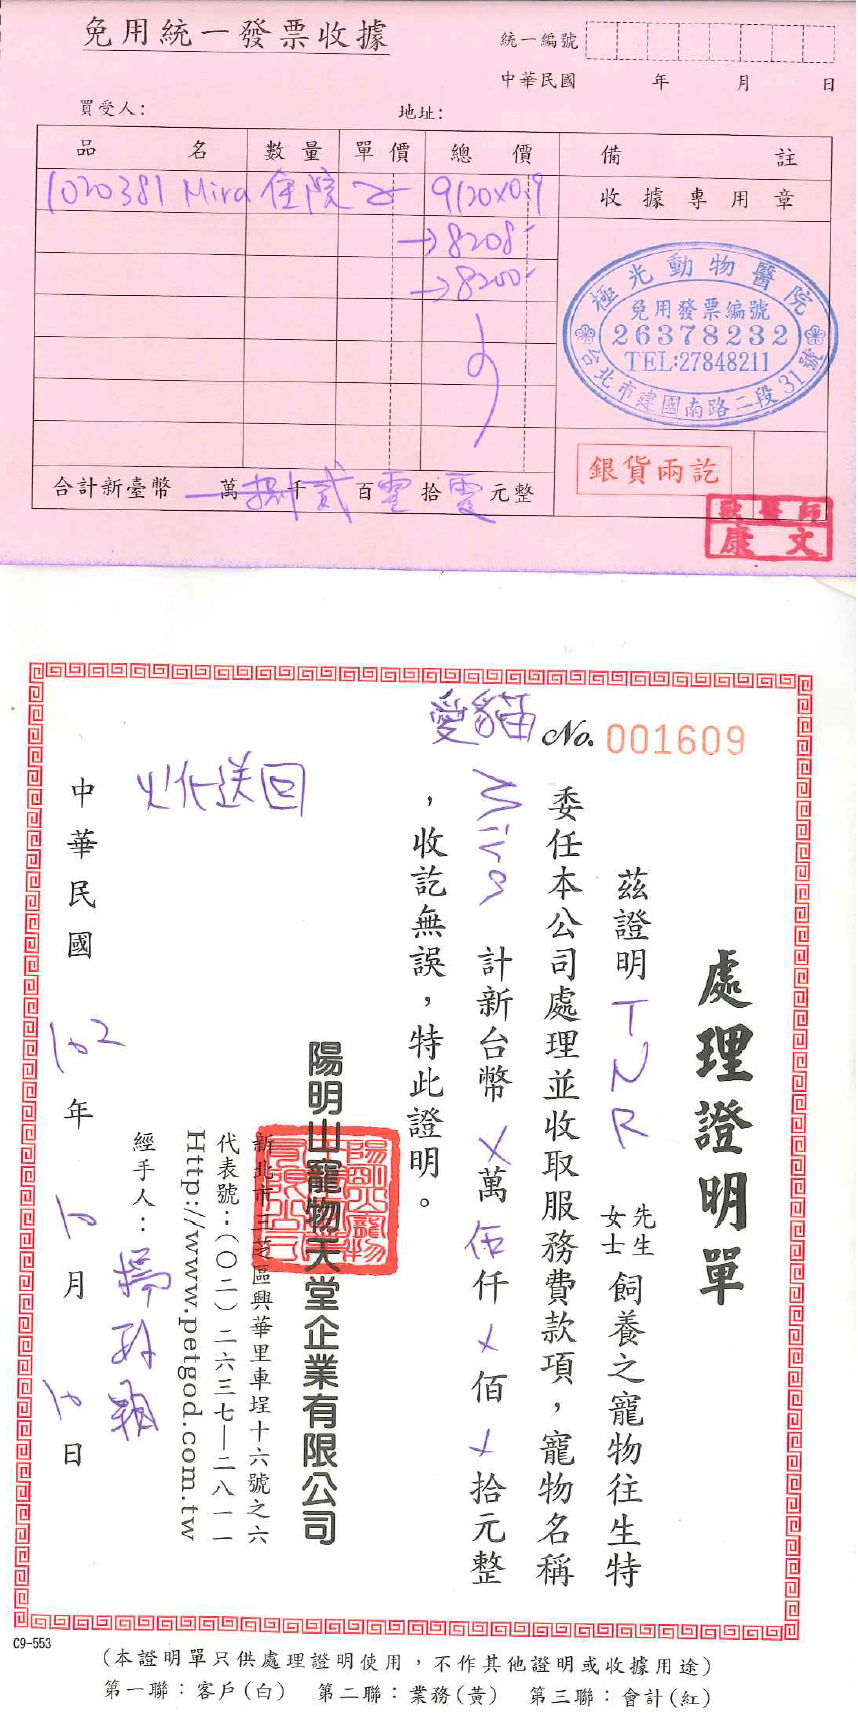 免用統一發票收據
統一編號
中華民國 年 月 日
買受人： 地址：
品名 數量 單價 總價 備註
1020381 Mira 住院 9120x0.9
收據專用章
→8208-
→8200-
極光動物醫院
免用發票編號
26378232
TEL:27848211
台北市建國南路二段31號
銀貨兩訖
合計新臺幣 萬捌千貳百零拾零元整
醫師
康文
愛貓 No. 001609
處理證明單
茲證明 TNR 先生女士 飼養之寵物往生特
委任本公司處理並收取服務費款項，寵物名稱
Mira 計新台幣 X萬伍仟X佰X拾元整
，收訖無誤，特此證明。
火化送回
陽明山寵物天堂企業有限公司
新北市三芝區興華里車埕十六號之六
代表號：（○二）二六三七—二八一一
Http://www.petgod.com.tw
經手人：
中華民國 102 年 10 月 10 日
C9-553
(本證明單只供處理證明使用，不作其他證明或收據用途)
第一聯：客戶(白) 第二聯：業務(黃) 第三聯：會計(紅)